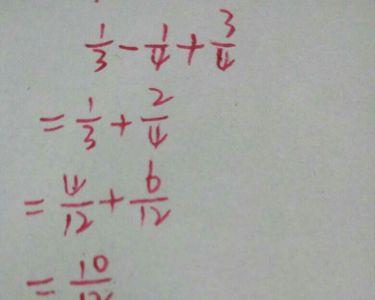 1/3 - 1/4 + 3/4
= 1/3 + 2/4
= 4/12 + 6/12
= 10/12